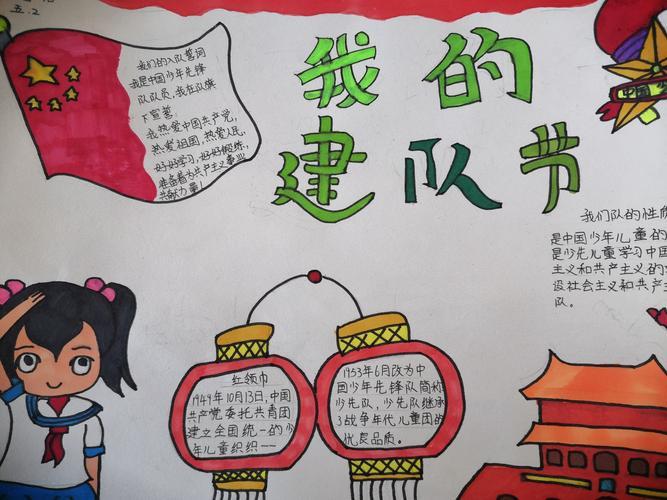 五.2
我们的入队誓词
我是中国少年先锋
队队员,我在队旗
下宣誓:
我热爱中国共产党,
热爱祖国,热爱人民,
好好学习,好好锻炼,
准备着为共产主义事业
贡献力量!
我的
建队节
我们队的性质
是中国少年儿童的
是少先儿童学习中国
主义和共产主义的
设社会主义和共产主
队。
红领巾
1949年10月13日,中国
共产党委托共青团
建立全国统一的少
年儿童组织——
1953年6月改为中
国少年先锋队简称
少先队,少先队继承
了战争年代儿童团的
优良品质。